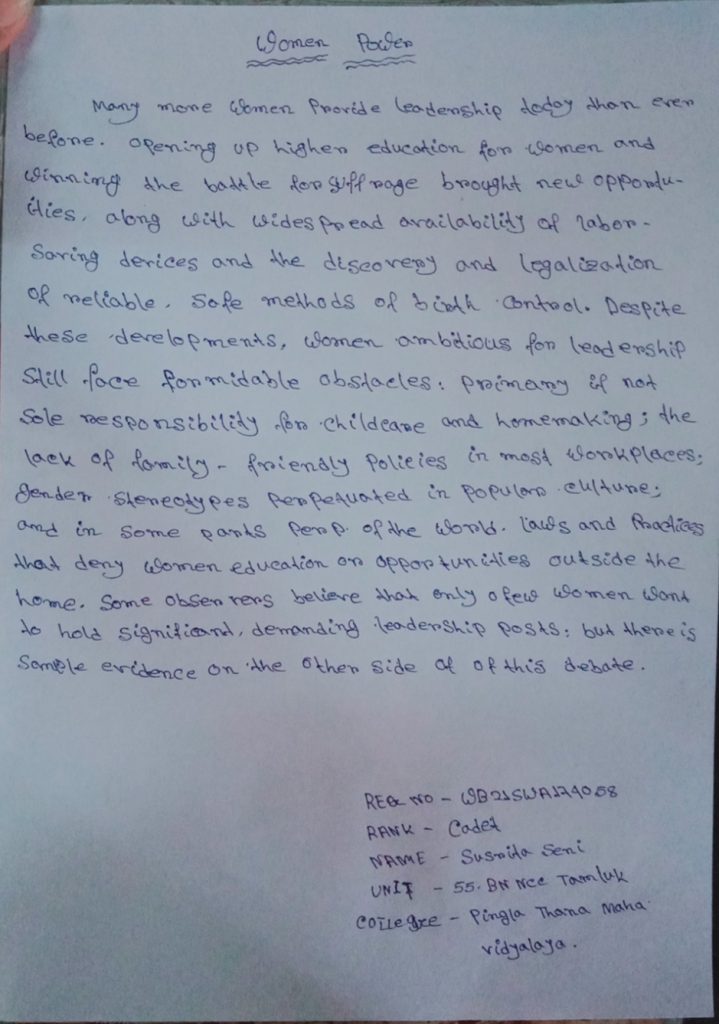 Women Power
Many more women Provide leadership today than ever
before. opening up higher education for women and
winning the battle for suffrage brought new opportu-
ities, along with widespread availability of labor-
Saving devices and the discovery and legalization
of reliable, safe methods of birth control. Despite
these developments, women ambitious for leadership
Still face formidable obstacles: primary if not
Sole responsibility for childcare and homemaking; the
lack of family-friendly Policies in most workplaces;
gender stereotypes perpetuated in popular culture;
and in some parts perp. of the world. laws and Practices
that deny women education or opportunities outside the
home. Some observers believe that only a few women want
to hold significant, demanding leadership posts; but there is
Sample evidence on the other side of of this debate.
REG NO - WB21SWA174058
RANK - Cadet
NAME - Susmita Seni
UNIT - 55. BN NCC Tamluk
College - Pingla Thana Maha
vidyalaya.